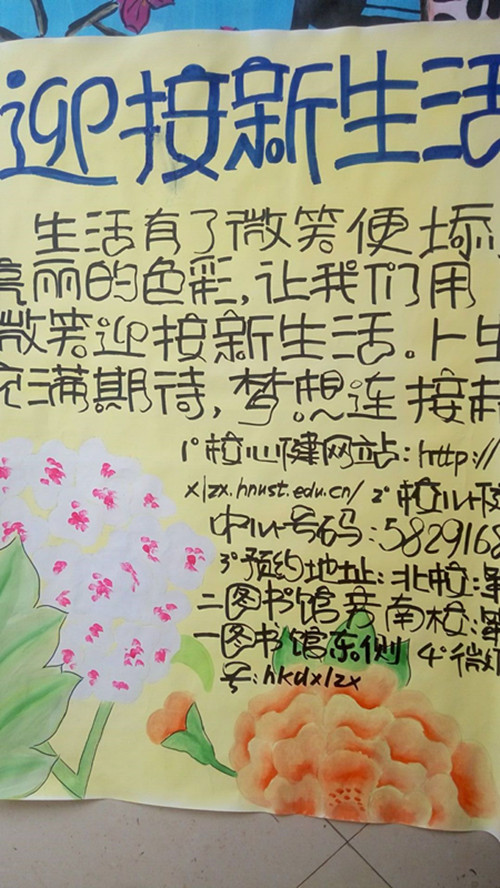 迎接新生活
生活有了微笑便添
亮丽的色彩,让我们用
微笑迎接新生活。
充满期待,梦想连接
1°校心健网站:http://
xlzx.hnust.edu.cn/ 2°校心
中心号码:5829168
3°预约地址:北校:
二图书馆 南校:
一图书馆东侧 4°微
号:hkdxlzx